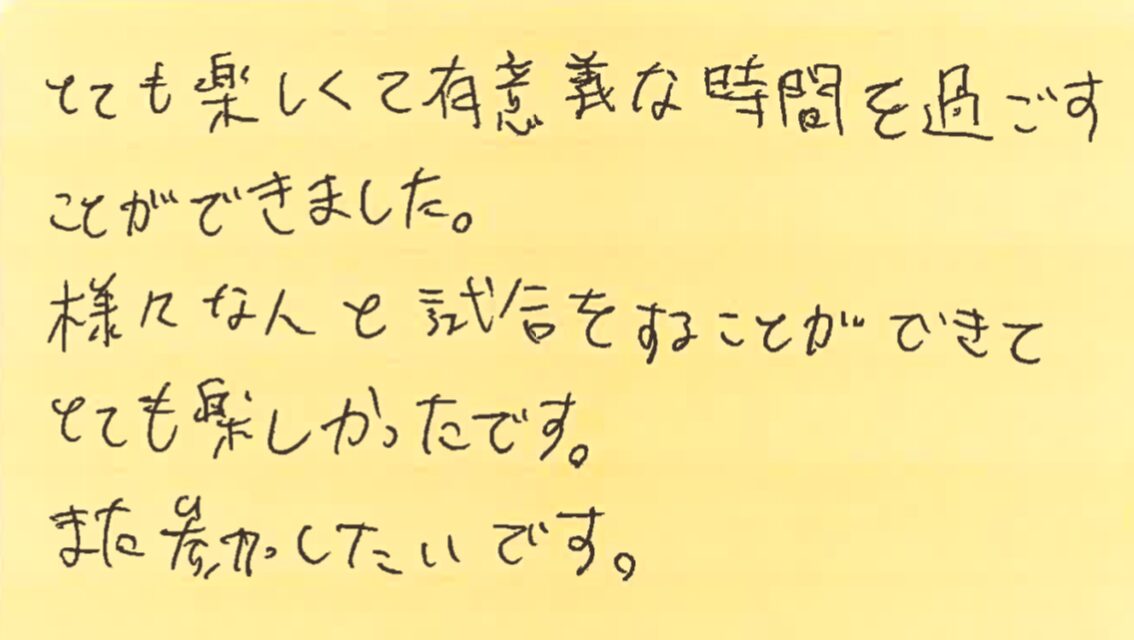 とても楽しくて有意義な時間を過ごす
ことができました。
様々な人と試合をすることができて
とても楽しかったです。
また参加したいです。